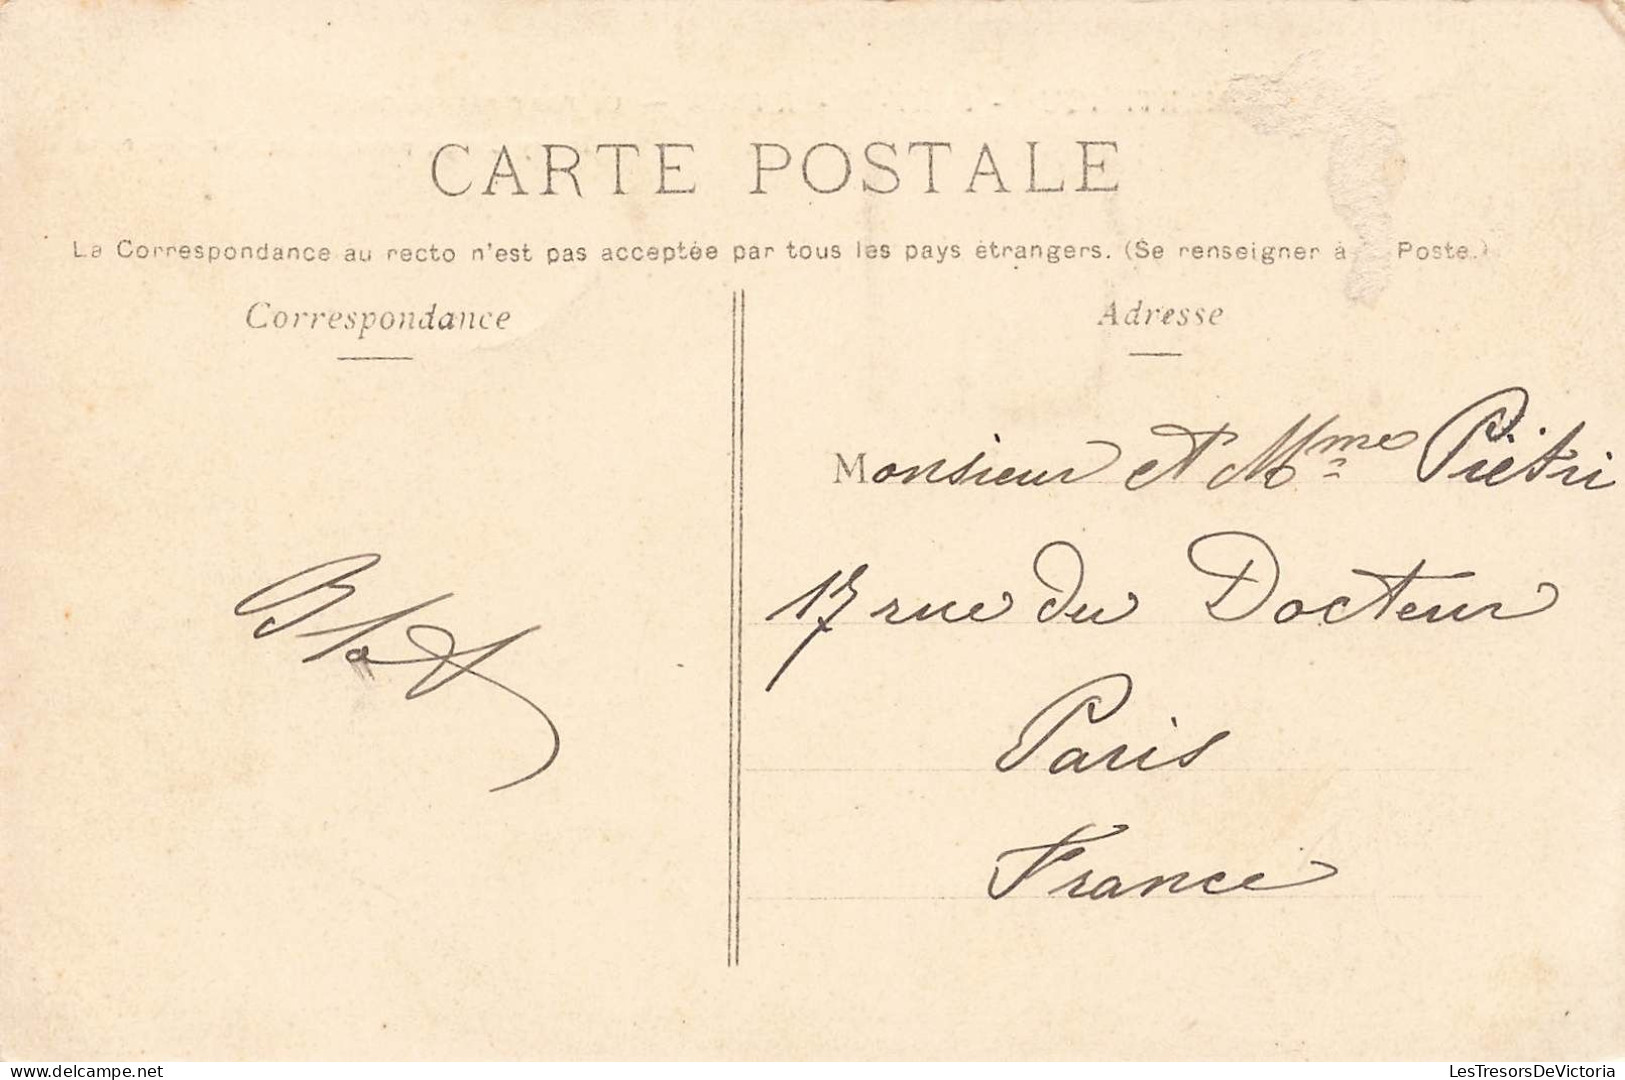 CARTE POSTALE
La Correspondance au recto n'est pas acceptée par tous les pays étrangers. (Se renseigner à Poste.)
Correspondance
Adresse
Monsieur et Mme Piétri
17 rue du Docteur
Paris
France
www.delcampe.net
LesTresorsDeVictoria